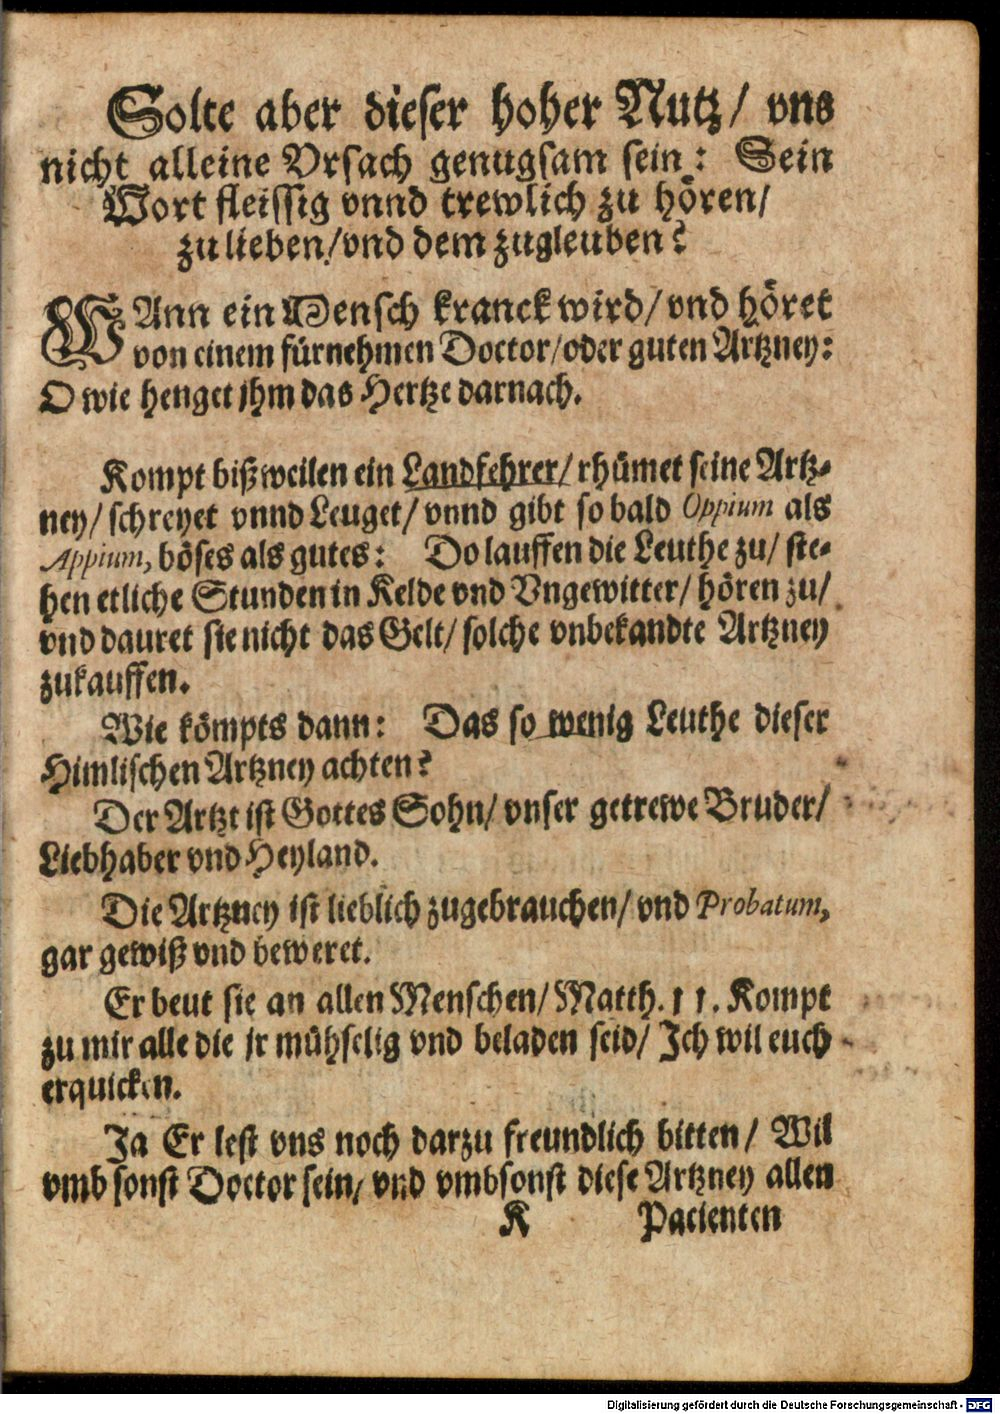 Solte aber dieser hoher Nutz/ vns
nicht alleine Vrsach genugsam sein: Sein
Wort fleissig vnnd trewlich zu hören/
zu lieben/ vnd dem zugleuben?
WAnn ein Mensch kranck wird/ vnd höret
von einem fürnehmen Doctor/ oder guten Artzney:
O wie henget jhm das Hertze darnach.
Kompt bißweilen ein Landfehrer/ rhümet seine Artz-
ney/ schreyet vnnd Leuget/ vnnd gibt so bald Oppium als
Appium, böses als gutes: Do lauffen die Leuthe zu/ ste-
hen etliche Stunden in Kelde vnd Vngewitter/ hören zu/
vnd dauret sie nicht das Gelt/ solche vnbekandte Artzney
zukauffen.
Wie kömpts dann: Das so wenig Leuthe dieser
Himlischen Artzney achten?
Der Artzt ist Gottes Sohn/ vnser getrewe Bruder/
Liebhaber vnd Heyland.
Die Artzney ist lieblich zugebrauchen/ vnd Probatum,
gar gewiß vnd beweret.
Er beut sie an allen Menschen/ Matth. 11. Kompt
zu mir alle die jr mühselig vnd beladen seid/ Ich wil euch
erquicken.
Ja Er lest vns noch darzu freundlich bitten/ Wil
vmb sonst Doctor sein/ vnd vmbsonst diese Artzney allen
K Pacienten
Digitalisierung gefördert durch die Deutsche Forschungsgemeinschaft - DFG